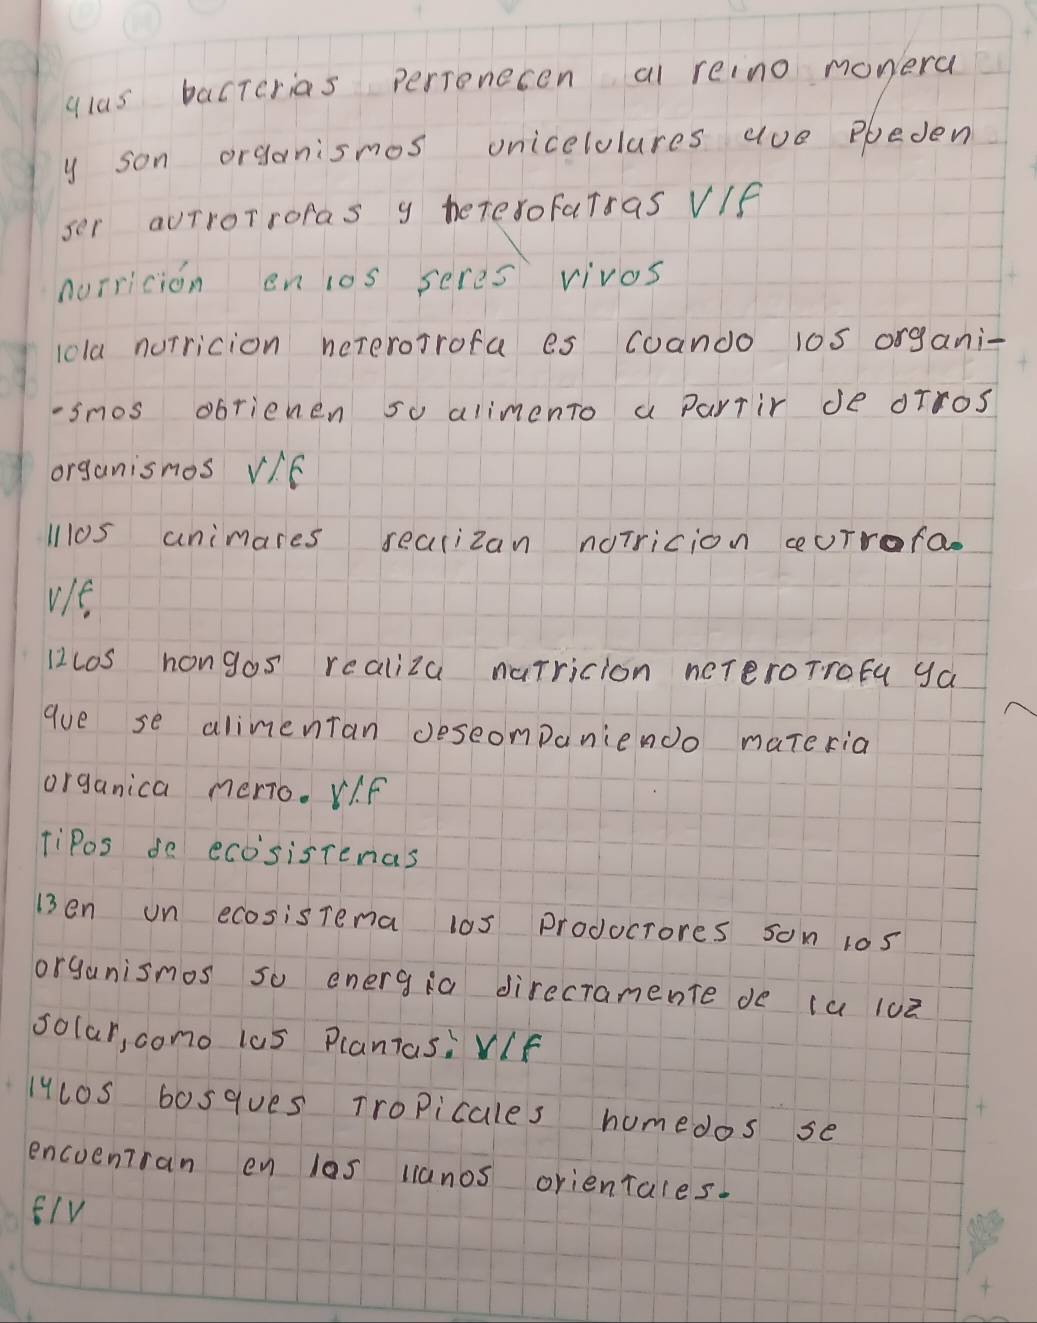 9las bacterias pertenecen al reino monera
y son organismos unicelulares que pueden
ser autrotrofas y heterofatras V/F
nutrición en los seres vivos
10la nutricion heterotrofa es cuando los organi-
-smos obtienen su alimento a partir de otros
organismos V/F
11los animares realizan nutricion autrofa.
V/F.
12Los hongos realiza nutricion heterotrofa ya
que se alimentan deseompaniendo materia
organica merto. V/F
Tipos de ecosistemas
13en un ecosistema los productores son los
organismos su energia directamente de la luz
solar, como las plantas: V/F
14Los bosques tropicales humedos se
encuentran en los llanos orientales.
F/V